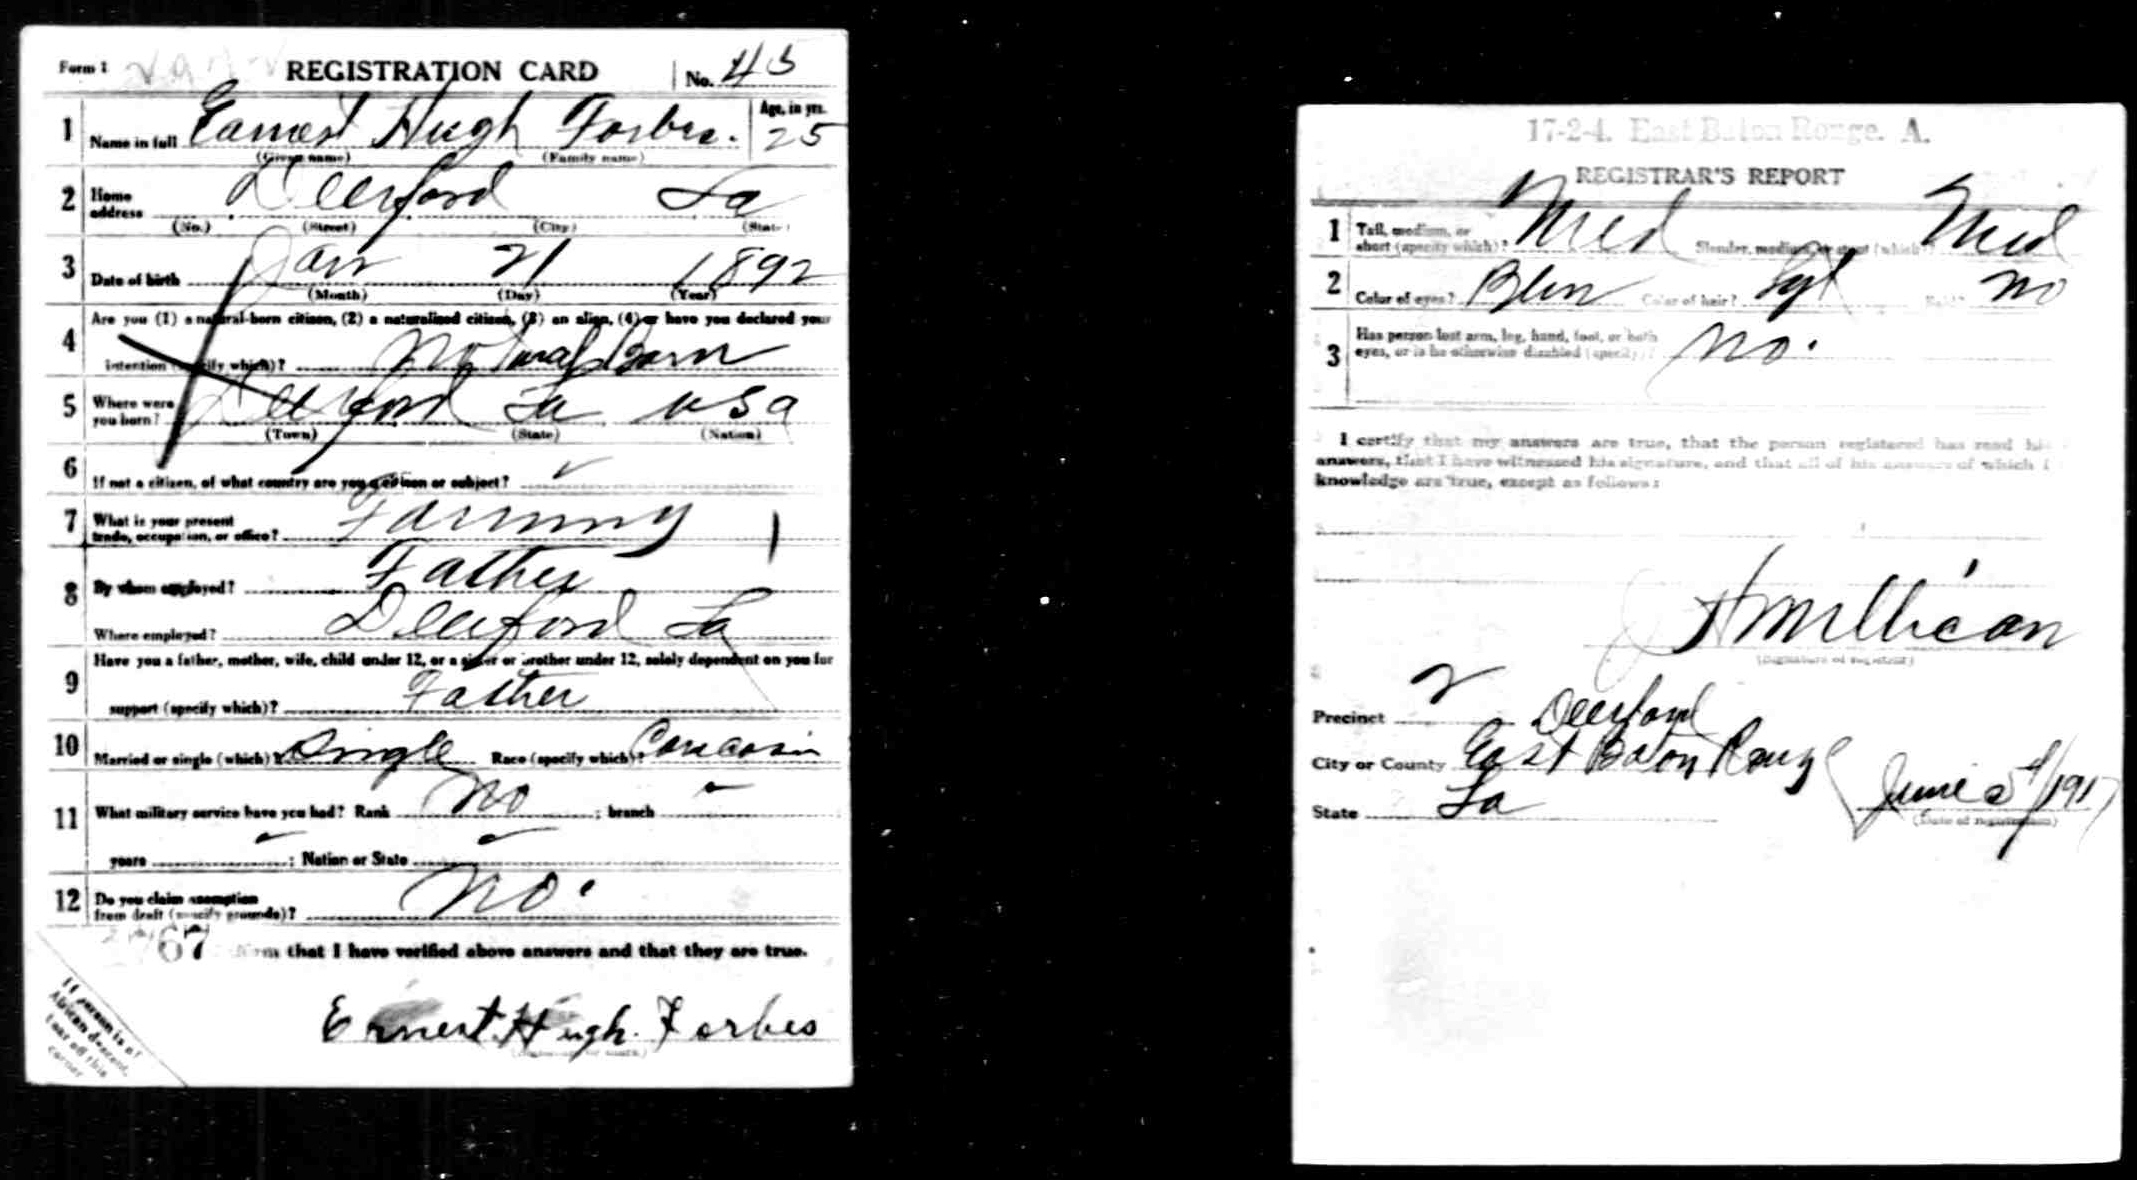 Form 1 REGISTRATION CARD No. 45
1 Name in full Earnest Hugh Forbes. Age, in yrs. 25
(Given name) (Family name)
2 Home address Deerford La
(No.) (Street) (City) (State)
3 Date of birth Jan 21 1892
(Month) (Day) (Year)
4 Are you (1) a natural-born citizen, (2) a naturalized citizen, (3) an alien, (4) or have you declared your
intention (specify which)? Natural Born
5 Where were you born? Deerford La USA
(Town) (State) (Nation)
6 If not a citizen, of what country are you a citizen or subject?
7 What is your present trade, occupation, or office? Farming
8 By whom employed? Father
Where employed? Deerford La
9 Have you a father, mother, wife, child under 12, or a sister or brother under 12, solely dependent on you for
support (specify which)? Father
10 Married or single (which)? Single Race (specify which)?
11 What military service have you had? Rank No ; branch
years ; Nation or State
12 Do you claim exemption from draft (specify grounds)? No.
67 affirm that I have verified above answers and that they are true.
If person is of
African descent,
tear off this
corner
Ernest Hugh Forbes
17-2-4. East Baton Rouge. A.
REGISTRAR'S REPORT
1 Tall, medium, or short (specify which)? Med Slender, medium, or stout (which)? Med
2 Color of eyes? Color of hair? Bald? No
3 Has person lost arm, leg, hand, foot, or both
eyes, or is he otherwise disabled (specify)? No.
I certify that my answers are true, that the person registered has read his
answers, that I have witnessed his signature, and that all of his answers of which I
knowledge are true, except as follows:
(Signature of registrar)
Precinct 2 Deerford
City or County East Baton Rouge
State La June 5 1917
(Date of registration)